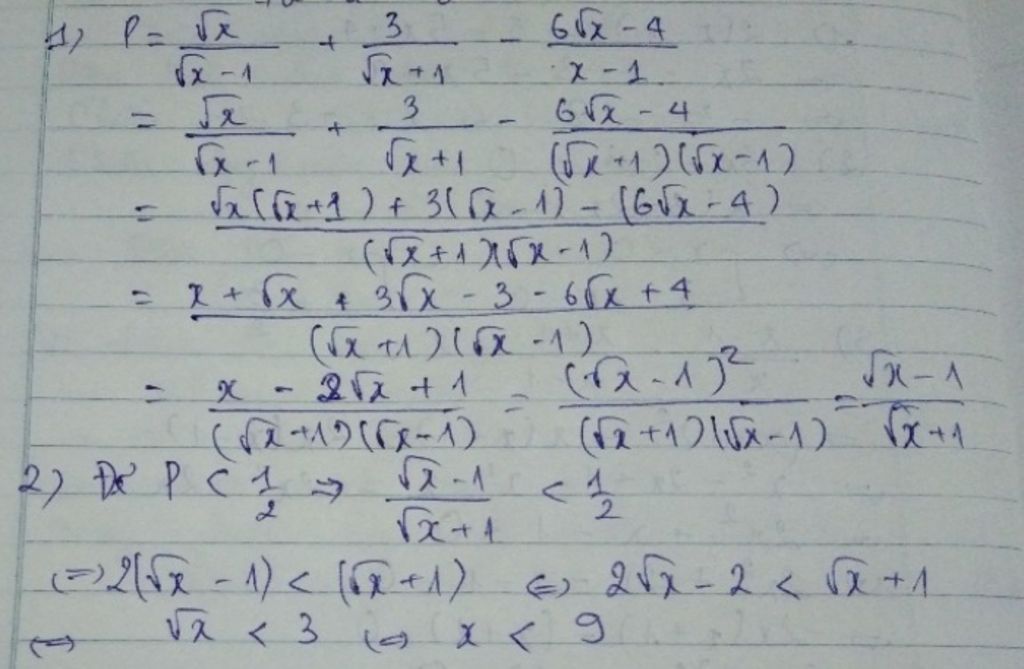 1) P = √x/(√x - 1) + 3/(√x + 1) - (6√x - 4)/(x - 1)
= √x/(√x - 1) + 3/(√x + 1) - (6√x - 4)/((√x + 1)(√x - 1))
= (√x(√x + 1) + 3(√x - 1) - (6√x - 4))/((√x + 1)(√x - 1))
= (x + √x + 3√x - 3 - 6√x + 4)/((√x + 1)(√x - 1))
= (x - 2√x + 1)/((√x + 1)(√x - 1)) = (√x - 1)²/((√x + 1)(√x - 1)) = (√x - 1)/(√x + 1)
2) Để P < 1/2 => (√x - 1)/(√x + 1) < 1/2
<=> 2(√x - 1) < (√x + 1) <=> 2√x - 2 < √x + 1
<=> √x < 3 <=> x < 9